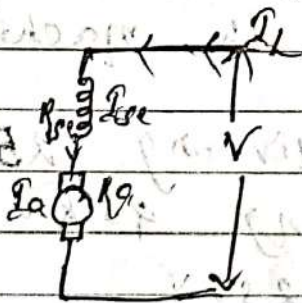 I_L
R_se I_se
V
I_a R_a